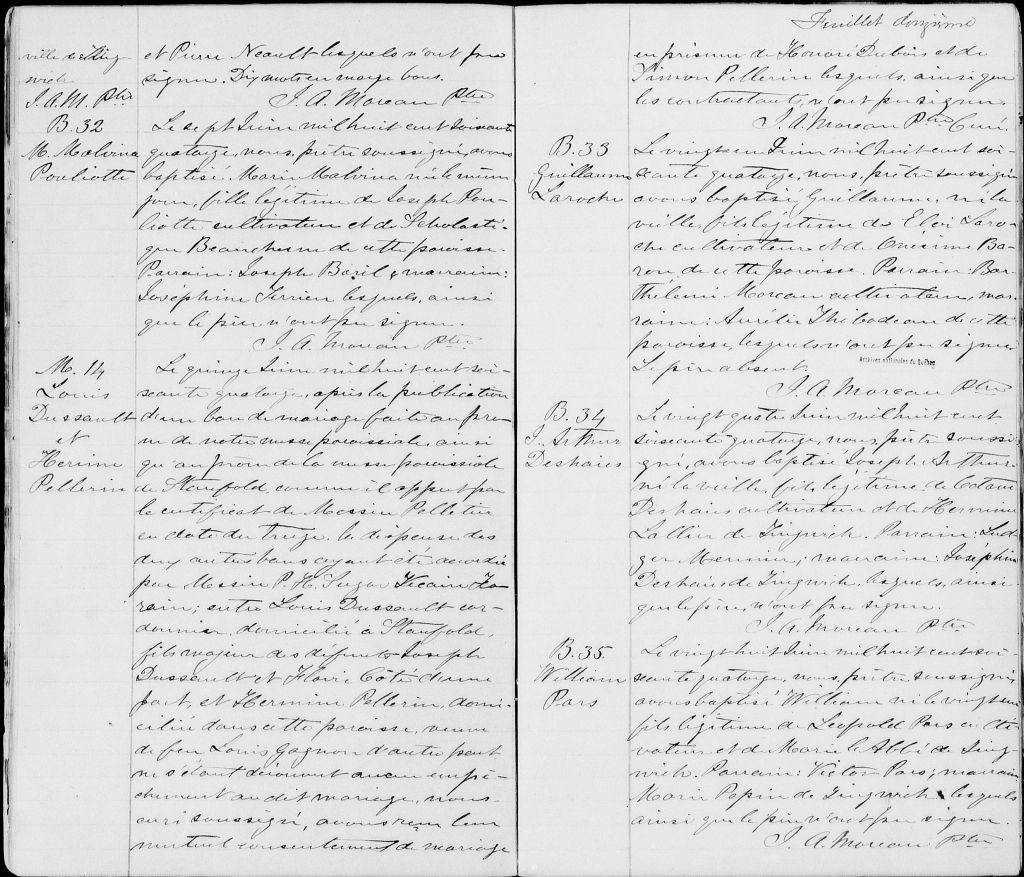 ville de Ling-
wich
J. A. M. Ptre
et Pierre Neault lesquels n'ont pu
signer. Dix mots en marge bons.
J. A. Moreau Ptre
B. 32
M. Malvina
Pouliotte
Le sept Juin mil huit cent soixante
quatorze, nous, prêtre soussigné, avons
baptisé Marie Malvina née le même
jour, fille légitime de Joseph Pou-
liotte cultivateur et de Scholasti-
que Beauchesne de cette paroisse.
Parrain: Joseph Baril & marraine:
Joséphine Terrien lesquels, ainsi
que le père, n'ont pu signer.
J. A. Moreau Ptre
M. 14
Louis
Dussault
et
Hermine
Pellerin
Le quinze Juin mil huit cent soi-
xante quatorze, après la publication
d'un ban de mariage faite au prô-
ne de notre messe paroissiale, ainsi
qu'au prône de la messe paroissiale
de Stanfold, comme il appert par
le certificat de Messire Pelletier
en date du treize, la dispense des
deux autres bans ayant été accordée
par Messire P. H. Suzor Vicaire Fo-
rain; entre Louis Dussault cor-
donnier, domicilié à Stanfold,
fils majeur des défunts Joseph
Dussault et Flavie Côté d'une
part, et Hermine Pellerin, domi-
ciliée dans cette paroisse, veuve
de feu Louis Gagnon d'autre part
ne s'étant découvert aucun empê-
chement au dit mariage, nous
curé soussigné, avons reçu leur
mutuel consentement de mariage
Feuillet douzième
en présence de Honoré Dubois et de
Simon Pellerin lesquels, ainsi que
les contractants, n'ont pu signer.
J. A. Moreau Ptre Curé.
B. 33
Guillaume
Laroche
Le vingt un Juin mil huit cent soi-
xante quatorze, nous, prêtre soussigné
avons baptisé Guillaume, né la
veille, fils légitime de Eloi Laro-
che cultivateur et de Onésime Ba-
ron, de cette paroisse. Parrain: Bar-
thélemi Moreau cultivateur, mar-
raine: Aurélie Thibodeau de cette
paroisse, lesquels n'ont pu signer.
Archives nationales du Québec
Le père absent.
J. A. Moreau Ptre
B. 34
J. Arthur
Deshaies
Le vingt quatre Juin mil huit cent
soixante quatorze, nous, prêtre soussi-
gné, avons baptisé Joseph Arthur
né la veille, fils légitime de Octave
Deshaies cultivateur et de Hermine
Lallier de Lingwick. Parrain: Lud-
ger Mennier; marraine: Joséphine
Deshaies de Lingwick, lesquels, ainsi
que le père, n'ont pu signer.
J. A. Moreau Ptre
B. 35.
William
Pars
Le vingt huit Juin mil huit cent soi-
xante quatorze, nous, prêtre soussigné,
avons baptisé William né le vingt un
fils légitime de Léopold Pars culti-
vateur et de Marie l'Abbé de Ling-
wick. Parrain: Victor Pars; marraine
Marie Pepin de Lingwick lesquels
ainsi que le père n'ont pu signer.
J. A. Moreau Ptre